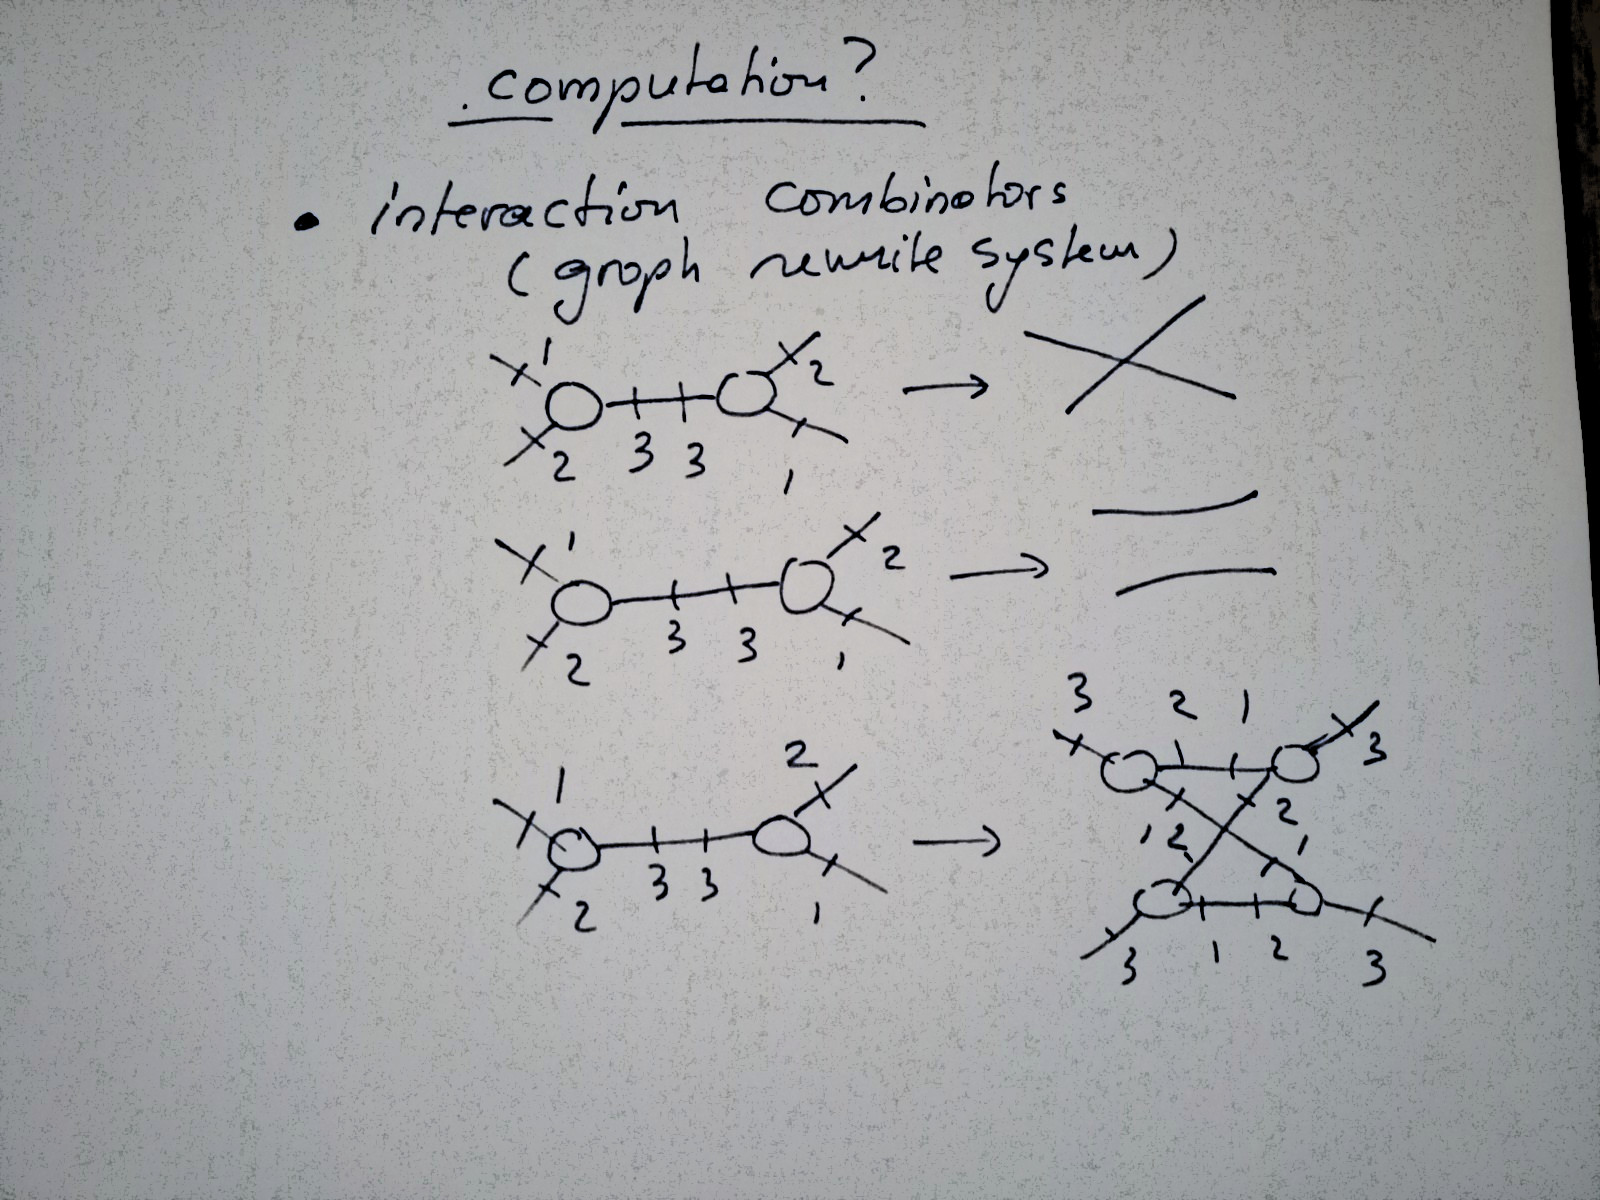 . computation?
• interaction combinators
(graph rewrite system)
1 2
2 3 3 1
1 2
2 3 3 1
3 2 1 3
1 2
2 3 3 1
1 2 2 1
3 1 2 3